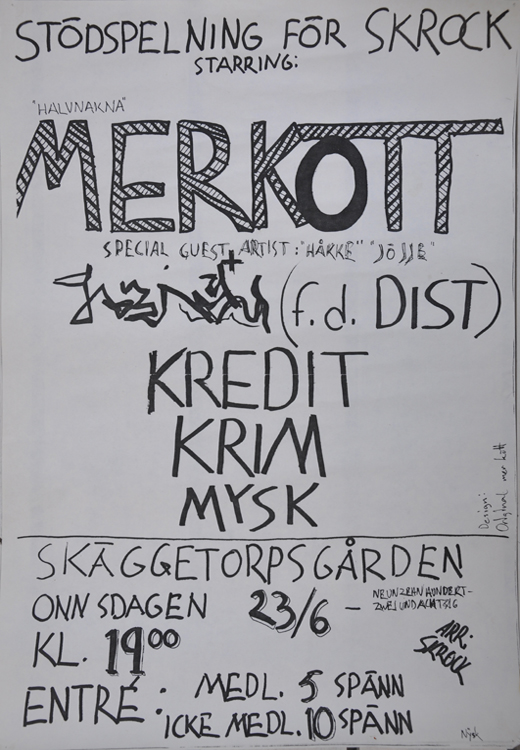 STÖDSPELNING FÖR SKROCK
STARRING:
"HALVNAKNA"
MERKÖTT
SPECIAL GUEST ARTIST: "HÅKKE" "JÖJJE"
(f.d. DIST)
KREDIT
KRIM
MYSK
Design:
Original mer kött
SKÄGGETORPSGÅRDEN
ONNSDAGEN 23/6 –
NEUNZEHNHUNDERT-
ZWEIUNDACHTZIG
KL. 19⁰⁰
ARR:
SKROCK
ENTRÉ: MEDL. 5 SPÄNN
ICKE MEDL. 10 SPÄNN